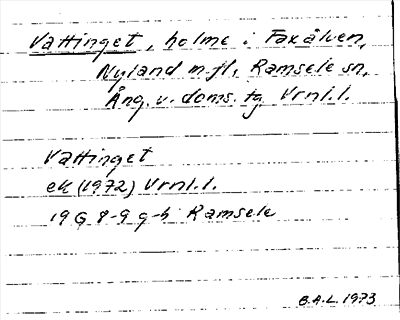 Vattinget, holme i Faxälven,
Nyland m.fl., Ramsele sn,
Ång. v. doms. tg Vrnl.l.
Vattinget
ek (1972) Vrnl.l.
19 G 8-9 g-h Ramsele
B.A.L. 1973